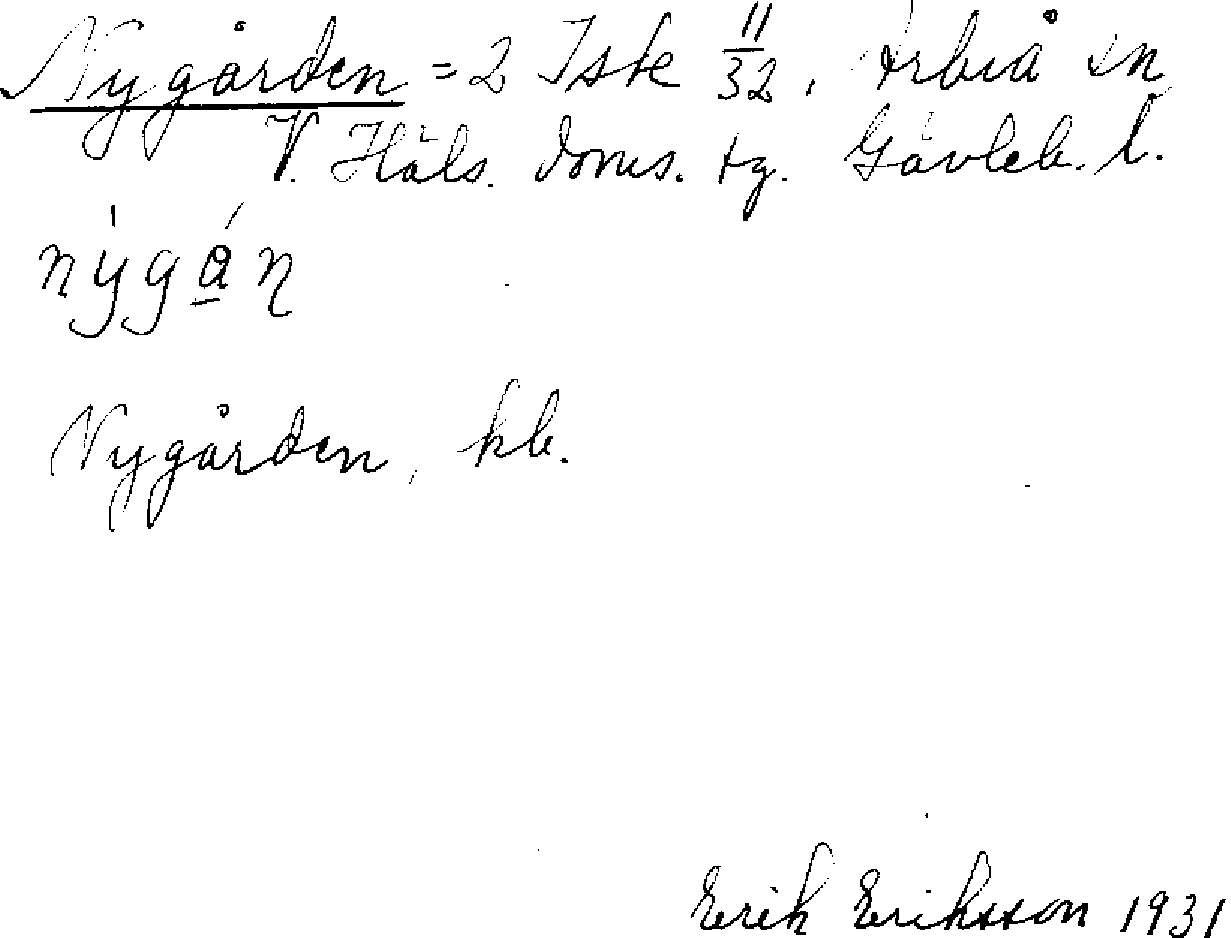 Nygården = 2 Iste 11/32, Arbrå sn
V. Häls. doms. tg. Gävleb. l.
nýgá̱n
Nygården, kb.
Erik Eriksson 1931